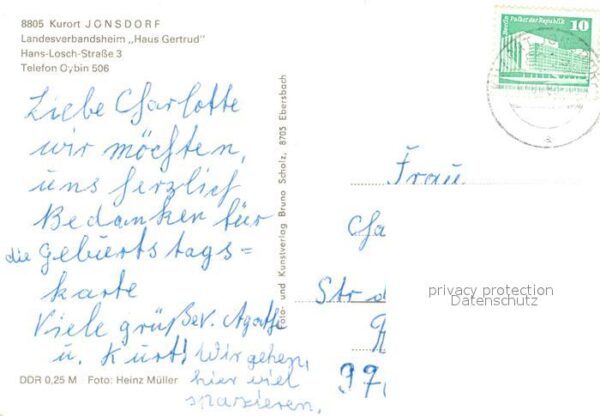 8805 Kurort JONSDORF
Landesverbandsheim „Haus Gertrud"
Hans-Losch-Straße 3
Telefon Oybin 506
Liebe Charlotte
wir möchten,
uns herzlich
Bedanken für
die Geburtstags=
karte
Viele grüße v. Agathe
u. Kurt!
Wir gehen,
hier viel
spazieren.
DDR 0,25 M Foto: Heinz Müller
Foto- und Kunstverlag Bruno Scholz, 8705 Ebersbach
Berlin Palast der Republik
10
Frau
Cha
Str d
97
privacy protection
Datenschutz